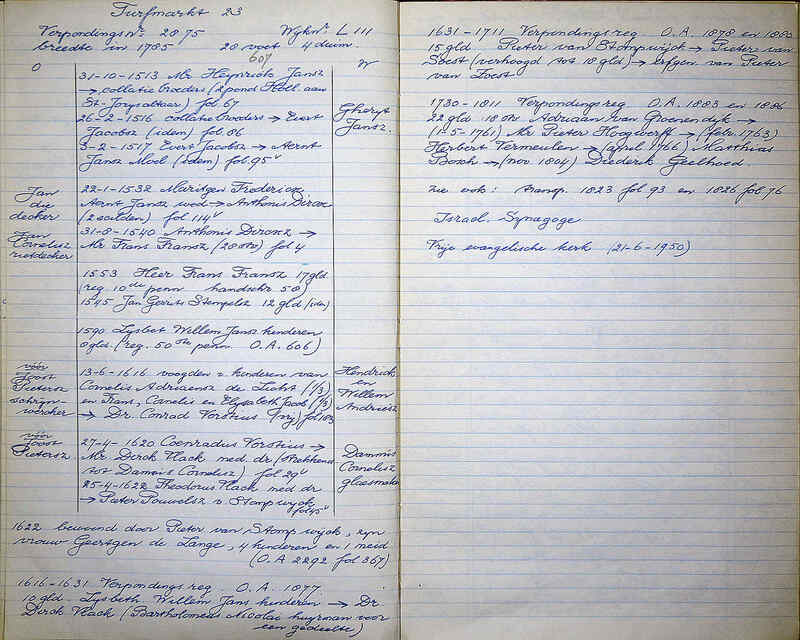 Turfmarkt 23
Verpondingsnr. 2875 Wijknr. L 111
breedte in 1785 28 voet 4 duim.
607
O W
31-10-1513 Mr Heynrick Jansz
→ collatie broeders (2 pond Holl. aan
St-Jorysaltaer) fol 67
26-2-1516 collatiebroeders → Evert
Jacobsz (idem) fol 86
3-2-1517 Evert Jacobsz → Aernt
Jansz Moel (idem) fol 95v
Gheryt
Jansz.
22-1-1532 Maritgen Fredericx
Aernt Jansz wed → Anthonis Dircxz
(2 scilden) fol 114v
31-8-1540 Anthonis Dircxz →
Mr Frans Fransz (28 str) fol 4
Jan
die
decker
Jan
Cornelisz
rietdecker
1553 Heer Frans Fransz 17 gld
(reg. 10de penn handschr 58)
1545 Jan Gerrits Stempelsz 12 gld (idem)
1590 Lysbet Willem Jansz kinderen
8 gld (reg. 50ste penn. O.A. 606)
vóór
Joost
Pietersz
schrijn-
wercker
13-6-1616 voogden v. kinderen van
Cornelis Adriaensz de Licht (1/3)
en Frans, Cornelis en Elysabeth Jacob (2/3)
→ Dr. Conrad Vorstius (vrij) fol 183
Hendrick
en
Willem
Andriesz
vóór
Joost
Pietersz.
27-4-1620 Coenradus Vorstius →
Mr Dirck Vlack med. dr (strekkens
tot Dammis Cornelisz) fol 29v
25-4-1622 Theodorus Vlack med dr
→ Pieter Pouwelsz v. Stompwijck
fol 45v
Dammis
Cornelisz
glaesmaker
1622 bewoond door Pieter van Stompwijck, zyn
vrouw Geertgen de Lange, 4 kinderen en 1 meid
(O.A 2292 fol 367)
1616-1631 Verpondingsreg. O.A. 1877
10 gld. Lysbeth Willem Jans kinderen → Dr.
Dirck Vlack (Bartholomeus Nicolai huyrman voor
een gedeelte)
1631-1711 Verpondingsreg. O.A. 1878 en 1880
15 gld Pieter van Stompwijck → Pieter van
Soest (verhoogd tot 18 gld) → Erfgen. van Pieter
van Soest
1730-1811 Verpondingsreg O.A. 1883 en 1886
22 gld 18 str Adriaan van Groenendijk →
(1-5-1761) Mr Pieter Hoogwerff → (febr. 1763)
Herbert Vermeulen → (april 1766) Matthias
Bosch → (nov. 1804) Diederik Geelhoed.
zie ook: transp. 1823 fol 93 en 1826 fol 76
Israel. Synagoge
Vrije evangelische kerk (21-6-1950)